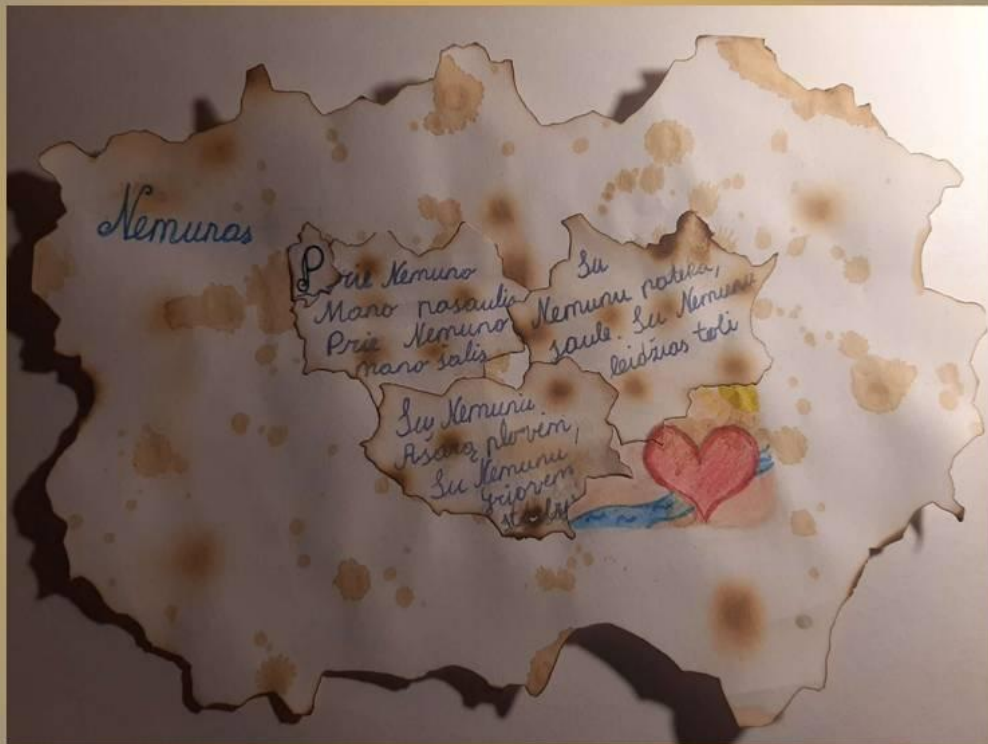 Nemunas
Prie Nemuno
Mano pasaulis
Prie Nemuno
mano šalis
Su
Nemunu pateka,
saulė. Su Nemunu
leidžias toli
Su Nemunu
Ašarą plovėm,
Su Nemunu
griovėm